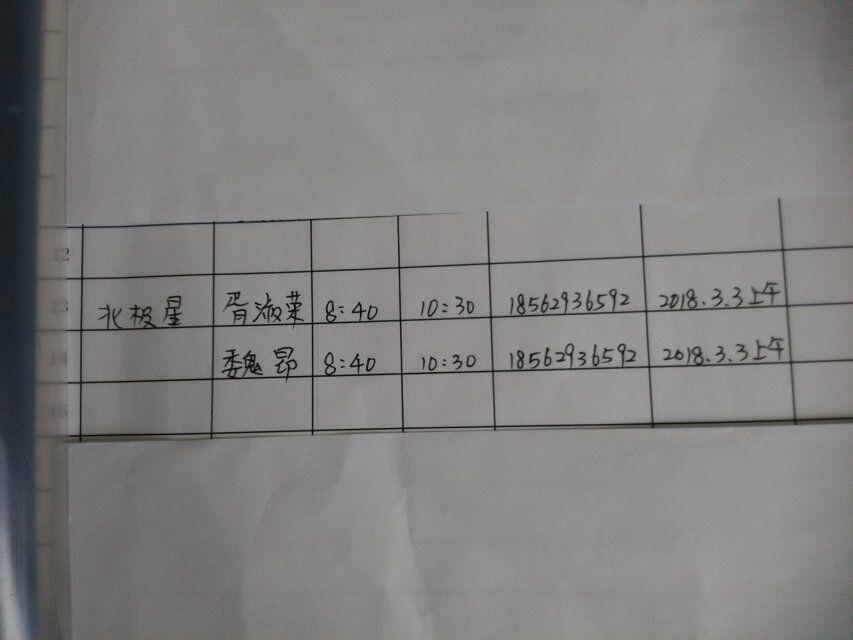 12
13 北极星 胥淑荣 8:40 10:30 18562936592 2018.3.3上午
14 魏昂 8:40 10:30 18562936592 2018.3.3上午
15